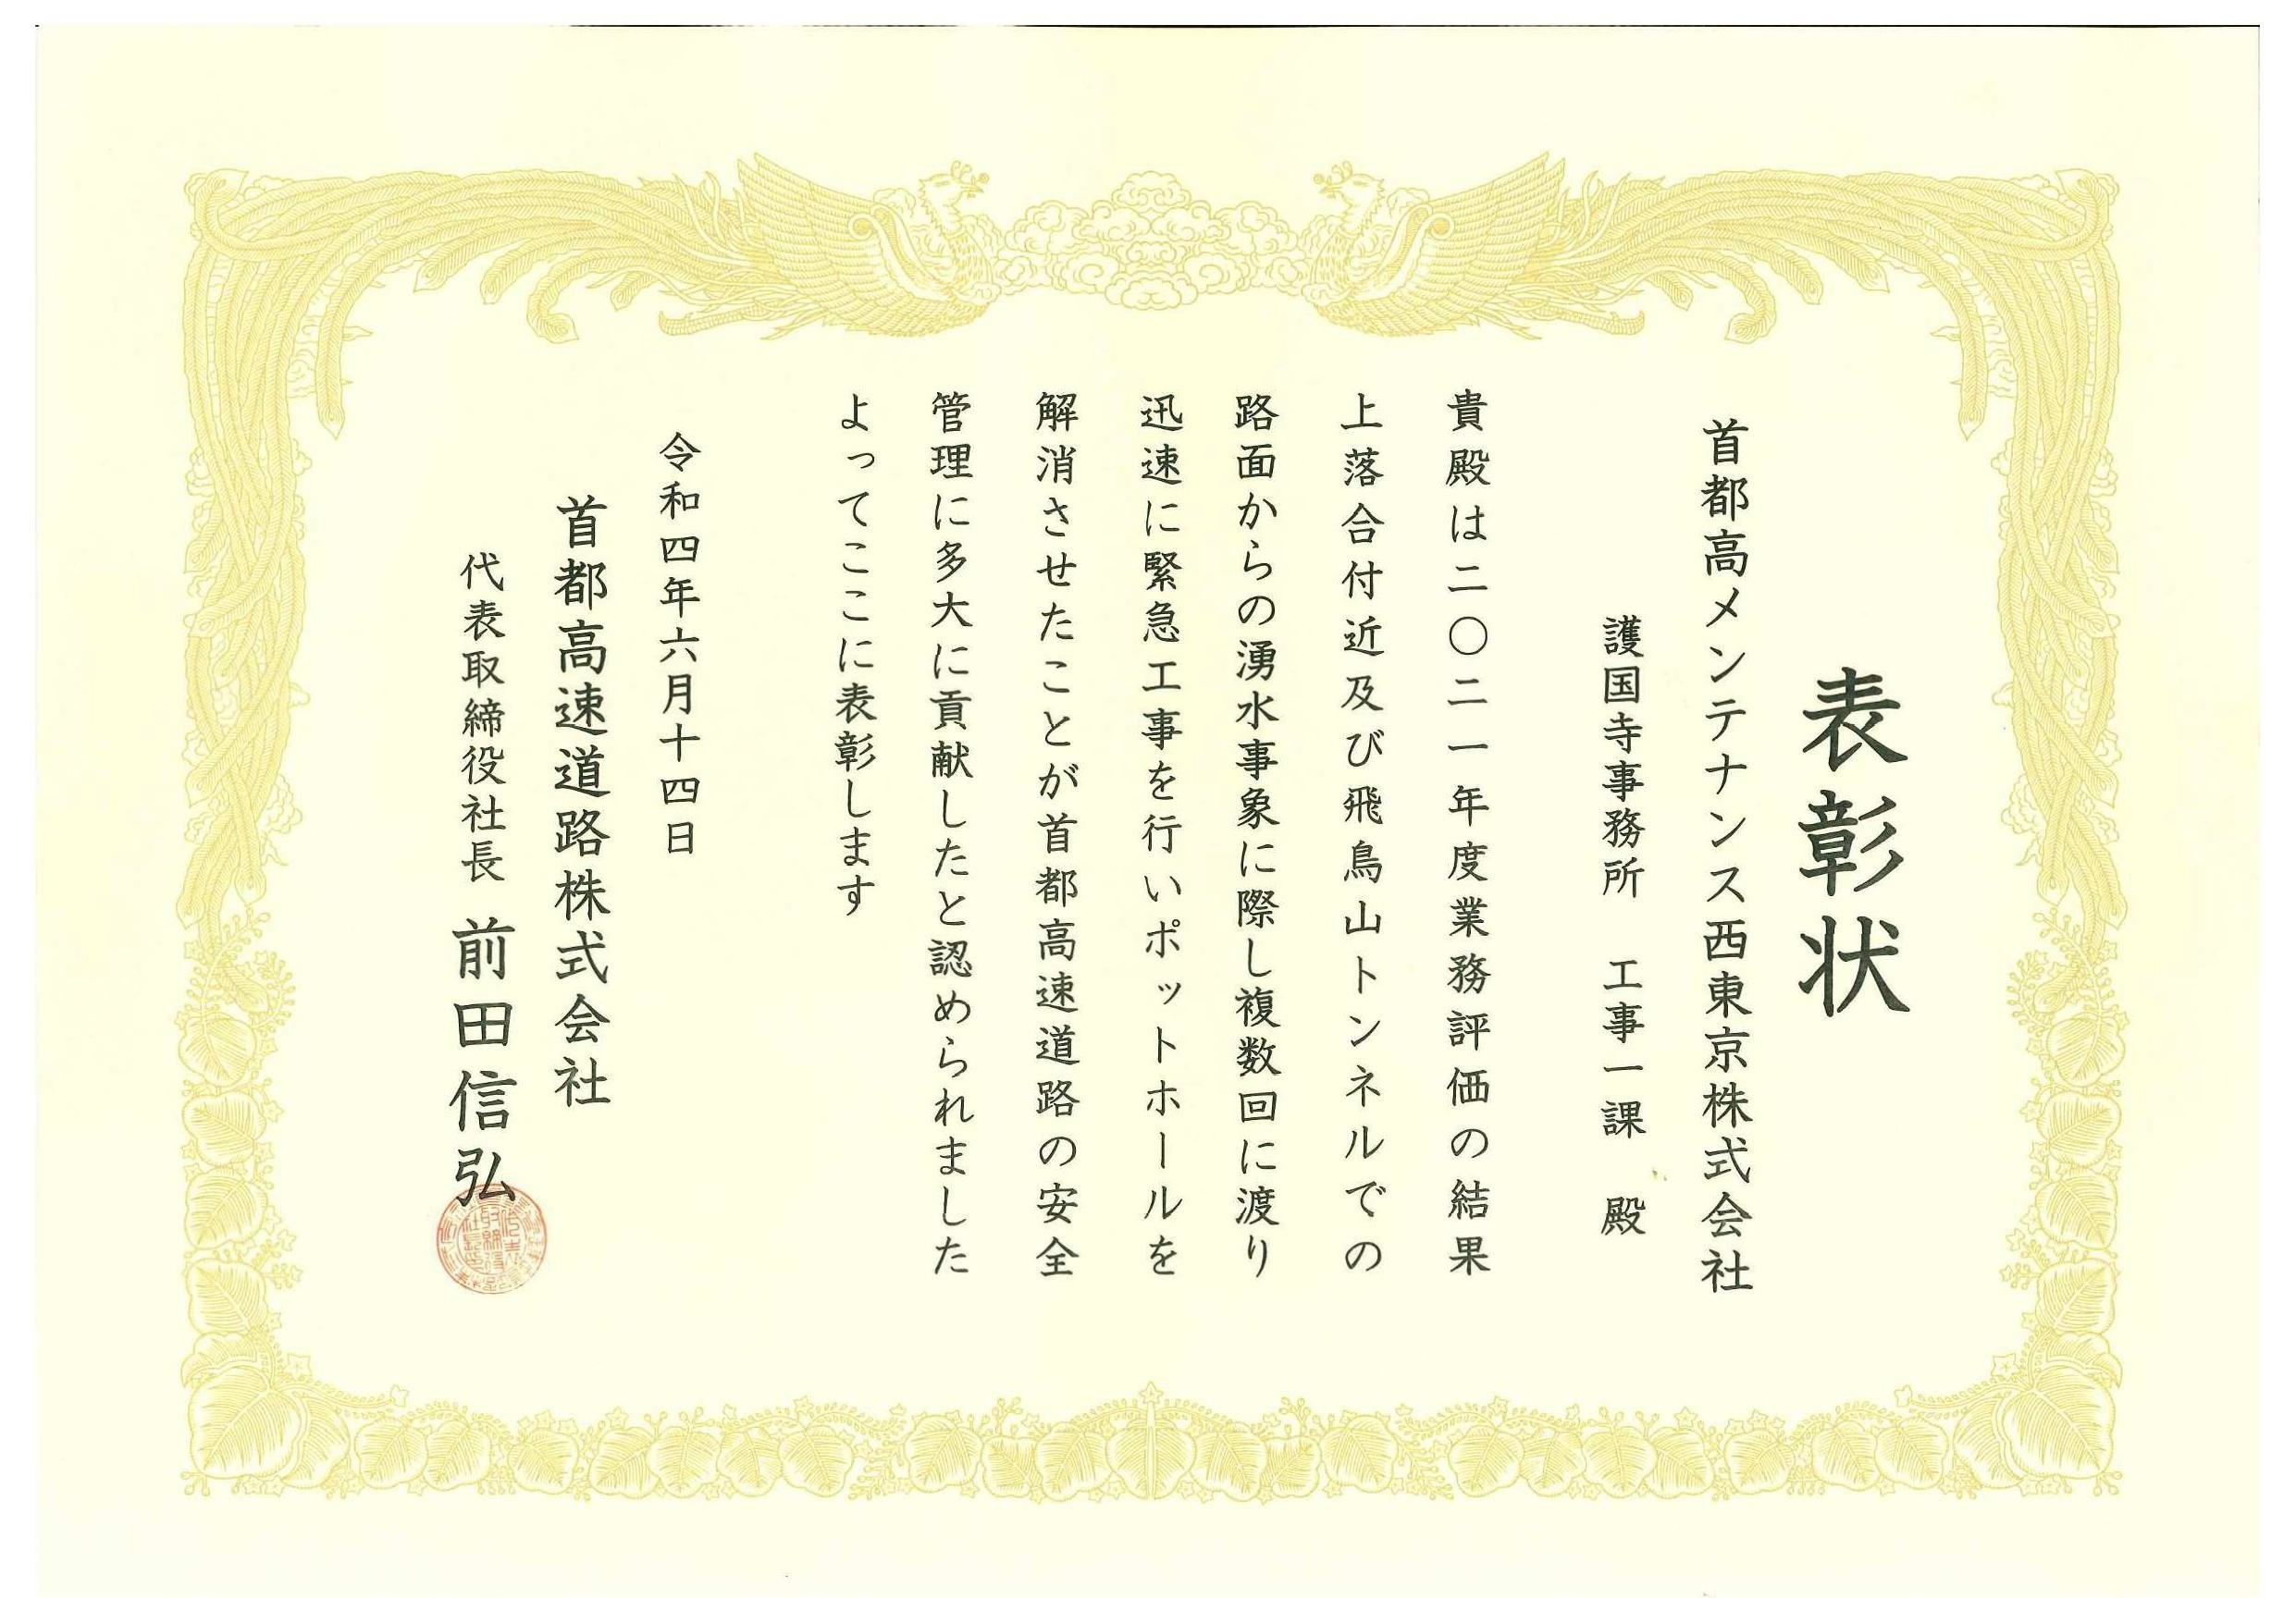 表彰状
首都高メンテナンス西東京株式会社
護国寺事務所 工事一課 殿
貴殿は二〇二一年度業務評価の結果
上落合付近及び飛鳥山トンネルでの
路面からの湧水事象に際し複数回に渡り
迅速に緊急工事を行いポットホールを
解消させたことが首都高速道路の安全
管理に多大に貢献したと認められました
よってここに表彰します
令和四年六月十四日
首都高速道路株式会社
代表取締役社長 前田信弘